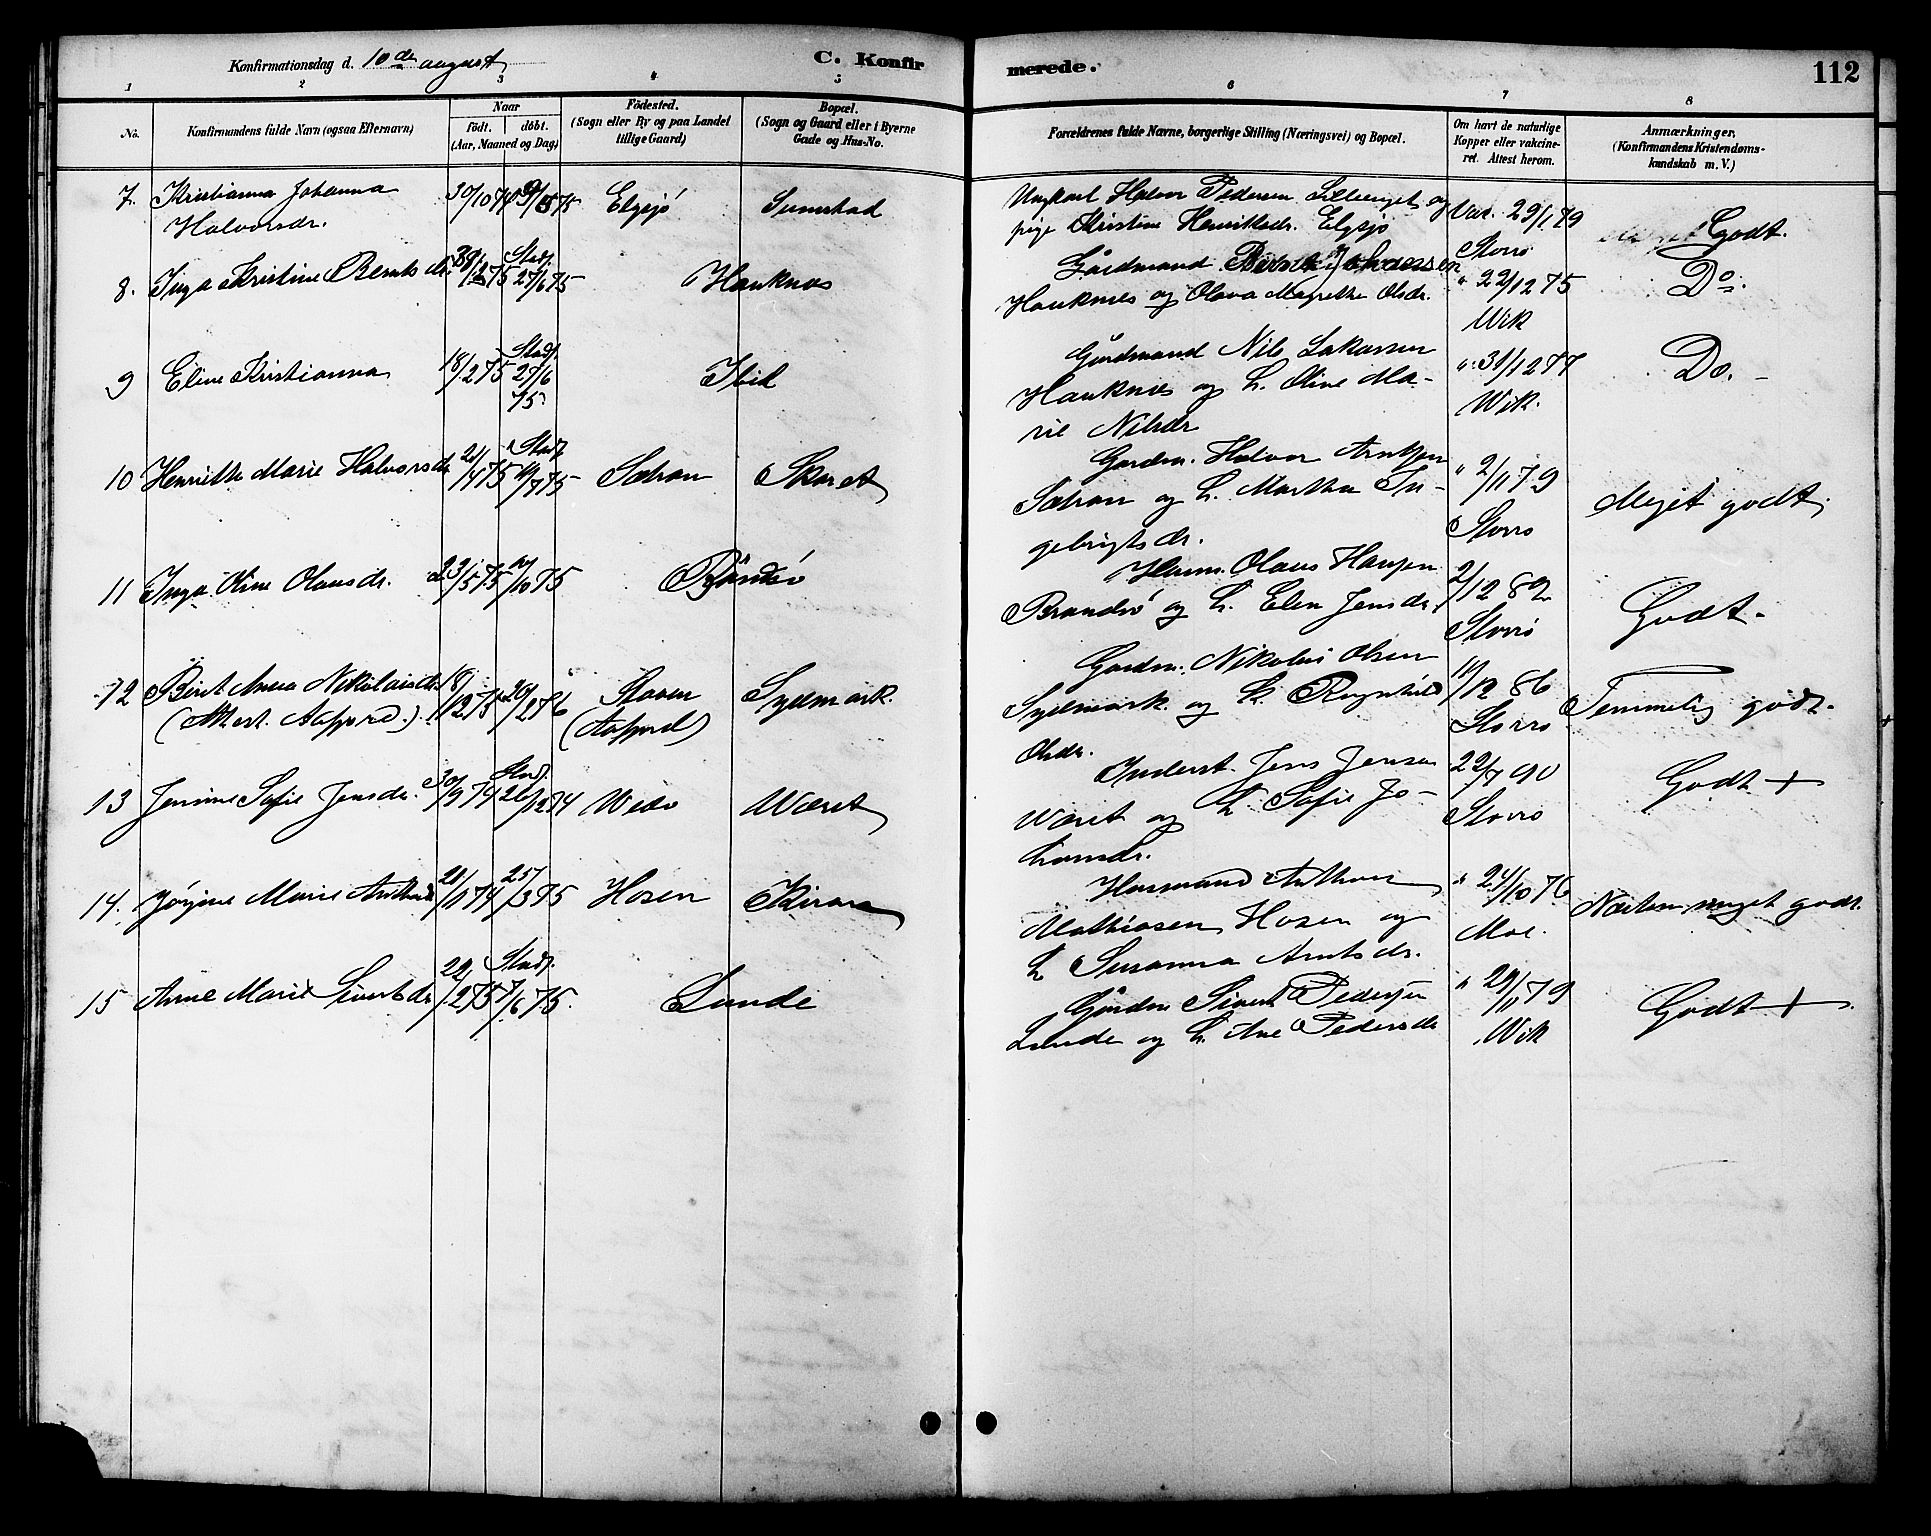 Konfirmationsdag d. 10de august
C. Konfirmerede.
112
1 2 3 4 5 6 7 8
No.
Konfirmandens fulde Navn (ogsaa Efternavn)
Naar
Födt. döbt.
(Aar, Maaned og Dag)
Födested.
(Sogn eller By og paa Landet
tillige Gaard)
Bopæl.
(Sogn og Gaard eller i Byerne
Gade og Hus-No.
Forældrenes fulde Navne, borgerlige Stilling (Næringsvei) og Bopæl.
Om havt de naturlige
Kopper eller vakcine-
ret. Attest herom.
Anmærkninger,
(Konfirmandens Kristendoms-
kundskab m. V.)
7. Kristianna Johanna 30/10 74 75 Elgsjö Sunnstad Ungkarl Halvor Pedersen og Vac. 29/1 79 Godt.
Halvorsdr. pige Kristine Henriksdr. Elgsjö Storrö
8. Inga Kristine Berntsdr. 75 Stadf. 27/6 75 Hauknes Gårdmand " 22/12 75 Do.
Hauknes og Olava Magrethe Olsdr. Wik
9 Eline Kristianna 18/2 75 Stadf. 27/6 75 Ibid Gårdmand Nils Lukassen " 31/12 77 Do.
Hauknes og h. Oline Ma- Wik.
rie Nilsdr
10 Henriette Marie Halvorsdr 75 Stadf. 75 Sætran Skaret Gardm. Halvor Arntsen " 2/11 79 Meget godt.
Sætran og h. Martha In- Storrö
gebrigtsdr.
11 Inga Oline Olausdr. 23/5 75 /10 75 Brandsö Husm. Olaus Hansen 2/12 82 Godt.
Brandsö og h. Elen Jensdr. Storrö
12 Berit Anna Nikolaisdr. 18/12 75 20/2 76 Staven Sydmark. Gardm. Nikolai Olsen 11/12 86 Temmelig godt.
(Attest. Aafjord.) (Aafjord) Sydmark. og h. Ragnhild Storrö
Olsdr.
13 Jensine Sofie Jensdr. 30/9 74 Stadf. 26/12 74 Været Inderst. Jens Jensen 22/7 90 Godt +
Været og h. Sofie Jo- Storrö
hansdr.
14. Jörgine Marie 21/1 74 25/3 75 Hosen Kiran Husmand Anthon " 24/10 76 Næsten meget godt.
Mathiasen Hosen og Moe.
h Susanna Arntsdr.
15 Anne Marie Sivertsdr 22/2 75 Stadf. 7/6 75. Lunde Gårdm Sivert Pedersen " 29/11 79 Godt +
Lunde og h. Ane Pedersdr Wik